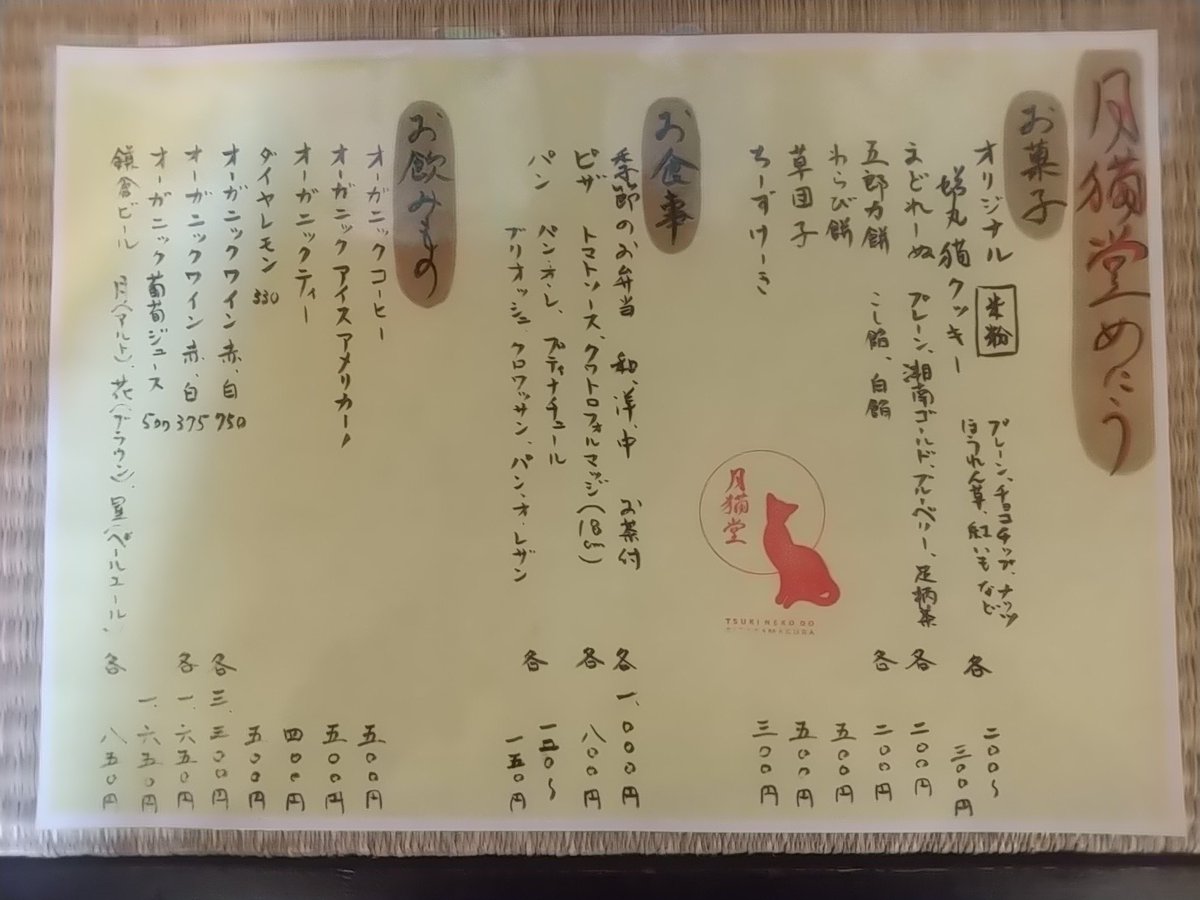 月猫堂めにう
お菓子
オリジナル 米粉 プレーン、チョコチップ、ナッツ
ほうれん草、紅いもなど 各 二〇〇〜
丸猫クッキー 三〇〇円
まどれーぬ プレーン、湘南ゴールド、ブルーベリー、足柄茶 各 二〇〇円
五郎力餅 こし餡、白餡 各 二〇〇円
わらび餅 五〇〇円
草団子 五〇〇円
ちーずけーき 三〇〇円
月猫堂
TSUKI NEKO DO
お食事
季節のお弁当 和、洋、中 お茶付 各 一、〇〇〇円
ピザ トマトソース、クワトロフォルマッジ(18cm) 各 八〇〇円
パン パン・オ・レ、プティナチュール 各 一三〇〜
ブリオッシュ クロワッサン、パン・オ・レザン 一五〇円
お飲みもの
オーガニックコーヒー 五〇〇円
オーガニック アイスアメリカーノ 五〇〇円
オーガニックティー 四〇〇円
ダイヤレモン 330 五〇〇円
オーガニックワイン 赤、白 750 各 三、三〇〇円
オーガニックワイン 赤、白 375 各 一、六五〇円
オーガニック葡萄ジュース 500 一、六五〇円
鎌倉ビール 月(アルト)、花(ブラウン)、星(ペールエール) 各 八五〇円